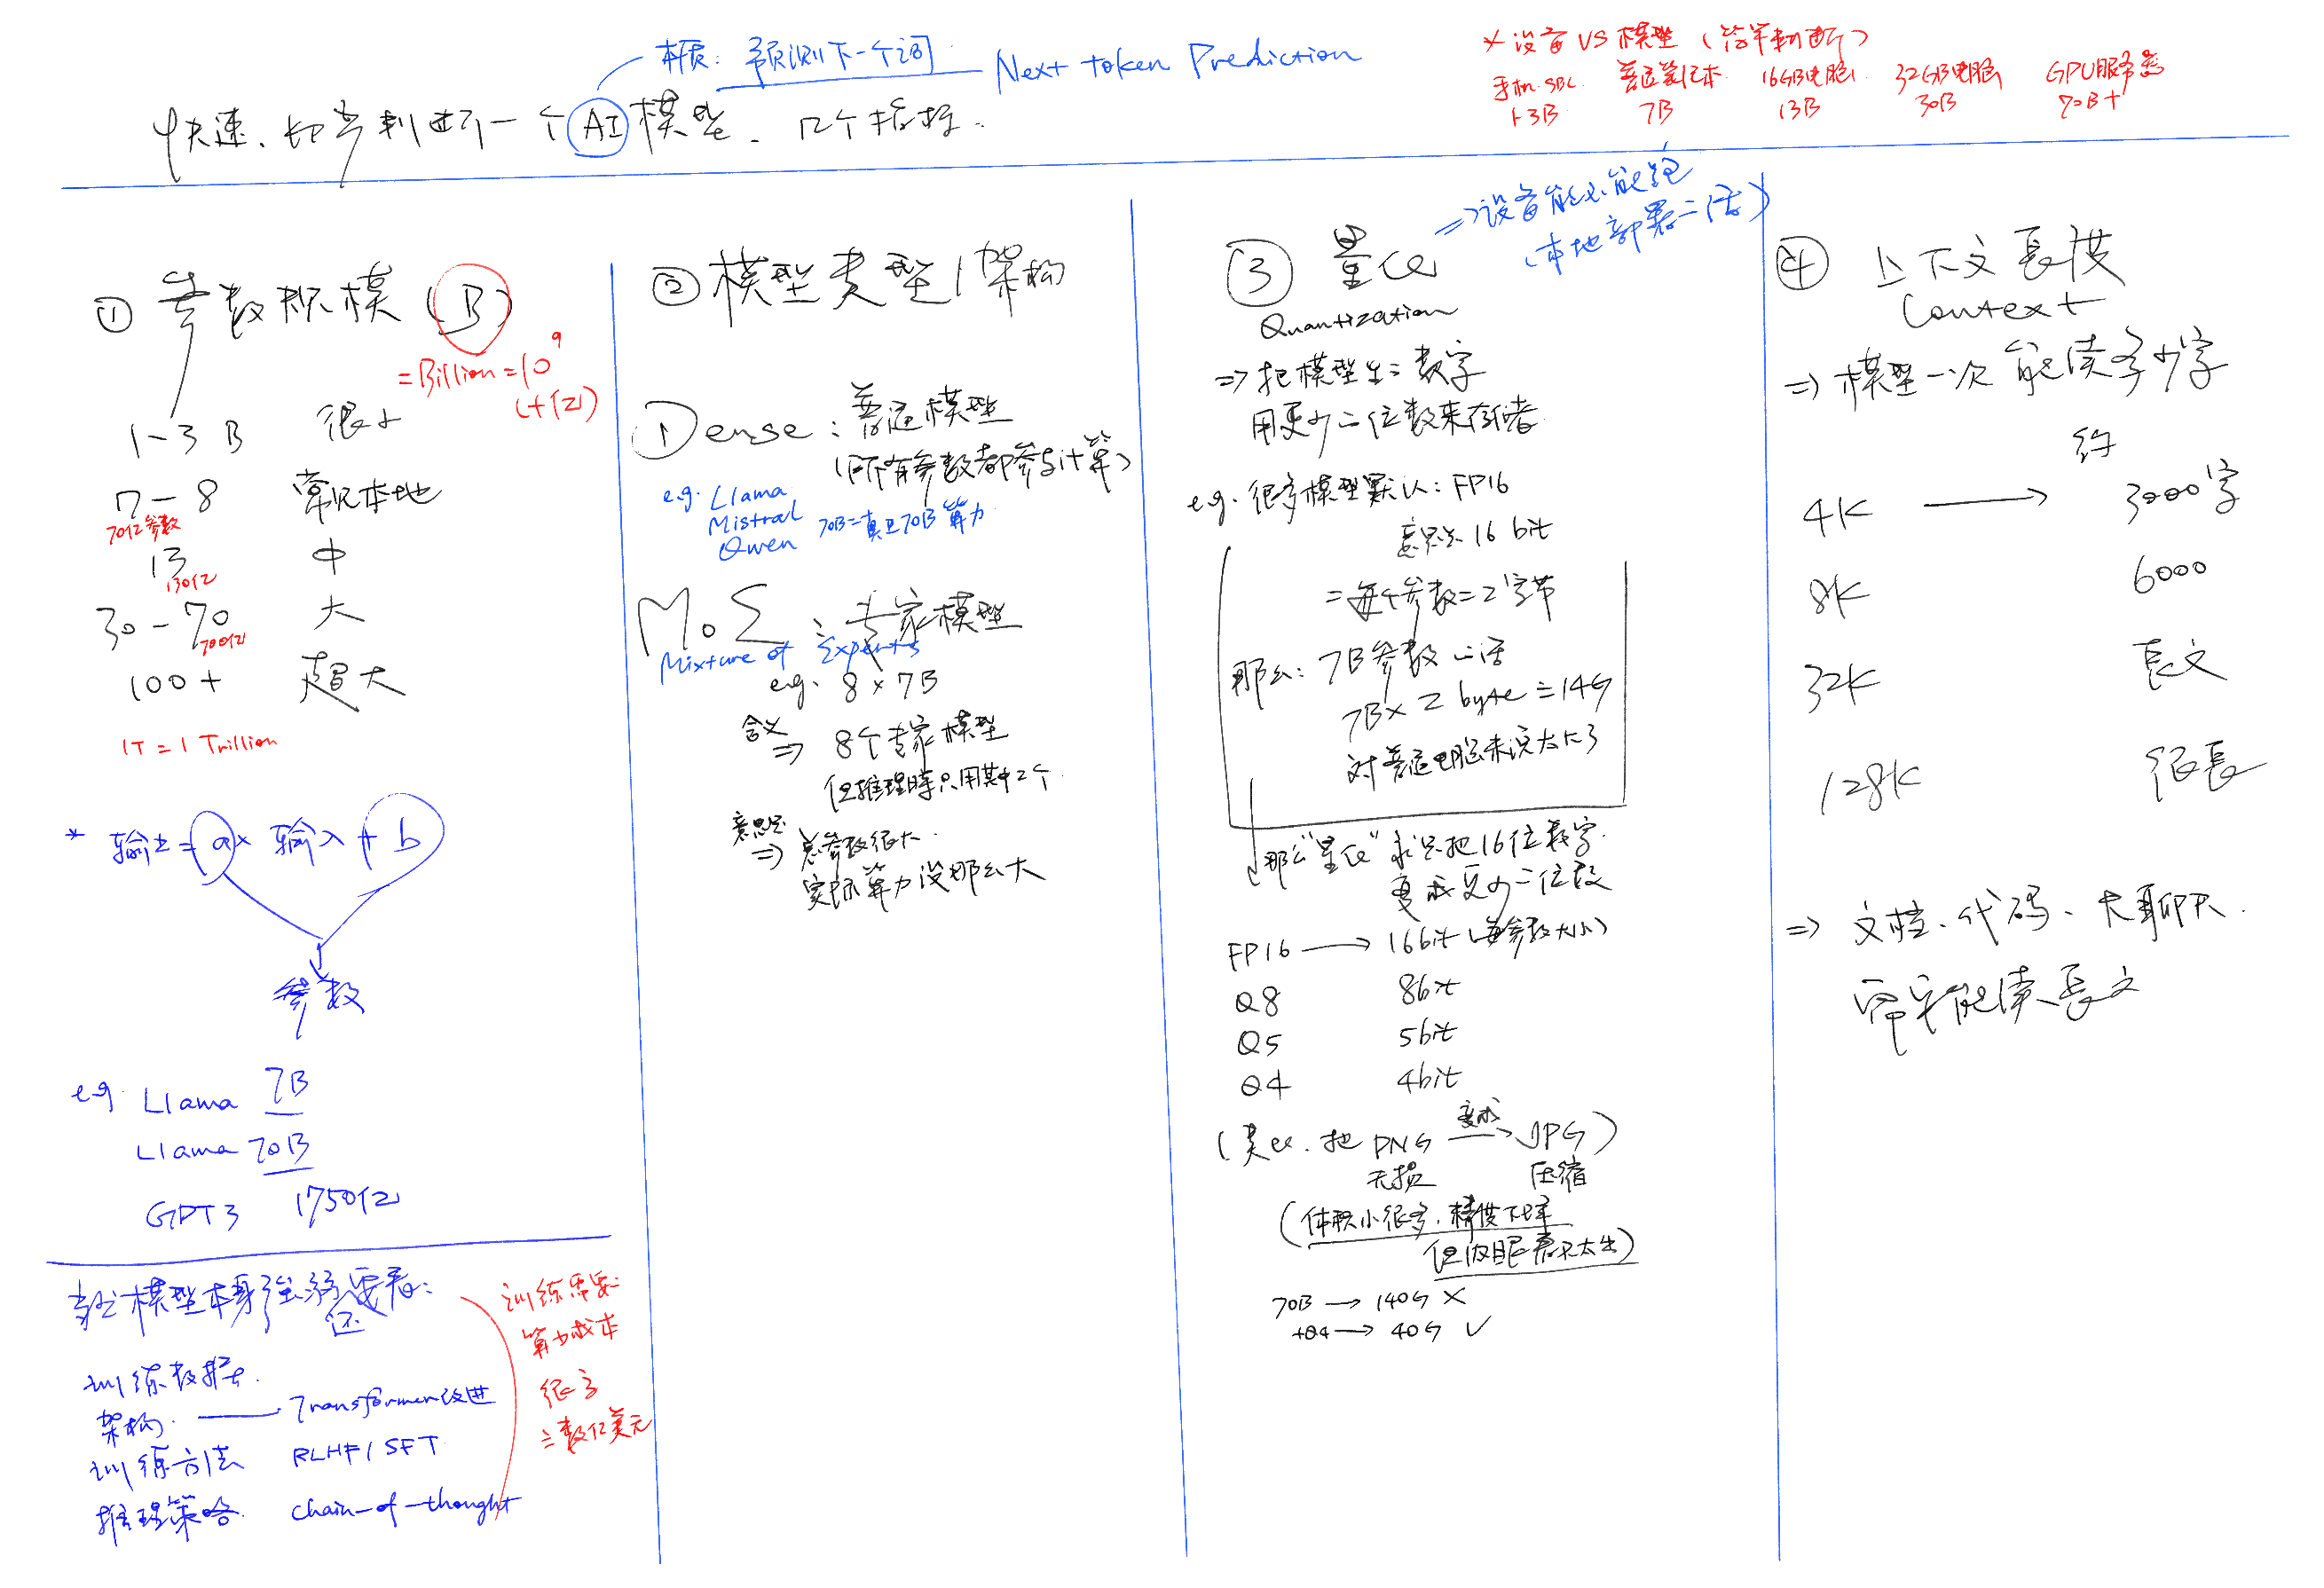 本质：预测下一个词 Next token Prediction
快速、初步判断一个AI模型、几个指标.
* 设备 VS 模型 (简单判断)
手机·SBC 普通笔记本 16GB电脑 32GB电脑 GPU服务器
1-3B 7B 13B 30B 70B+
① 参数规模 (B)
=Billion=10⁹
(十亿)
1-3 B 很小
7-8 常见本地
70亿参数
13 中
130亿
30-70 大
700亿
100+ 超大
1T = 1 Trillion
* 输出=a× 输入+b
参数
e.g. Llama 7B
Llama 70B
GPT3 1750亿
模型本身强弱还要看:
训练数据.
架构. Transformer改进
训练方法 RLHF/SFT
推理策略. Chain-of-thought
训练需要
算力成本
很高
≡数亿美元
② 模型类型/架构
Dense: 普通模型
(所有参数都参与计算)
e.g. Llama
Mistral 70B=真正70B算力
Qwen
MoE: 专家模型
Mixture of Experts
e.g. 8×7B
含义
⇒ 8个专家模型
但推理時只用其中2个
意思是
⇒ 总参数很大.
实际算力没那么大
③ 量化
Quantization
⇒设备能不能跑
(本地部署的话)
⇒ 把模型的数字
用更少的位数来存储
e.g. 很多模型默认: FP16
意思是 16 bit
=每个参数=2字节
那么: 7B参数的话
7B×2 byte=14G
对普通电脑来说太大了
那么"量化"就是把16位数字
变成更少的位数
FP16 → 16bit (每参数大小)
Q8 8bit
Q5 5bit
Q4 4bit
(类比. 把 PNG 变成→ JPG)
无损 压缩
(体积小很多,精度下降
但肉眼看不太出)
70B → 140G ×
+Q4 → 40G ✓
④ 上下文長度
Context
⇒ 模型一次能读多少字
约
4K → 3000字
8K 6000
32K 長文
128K 很長
⇒ 文档、代码、大聊天.
需要能读長文